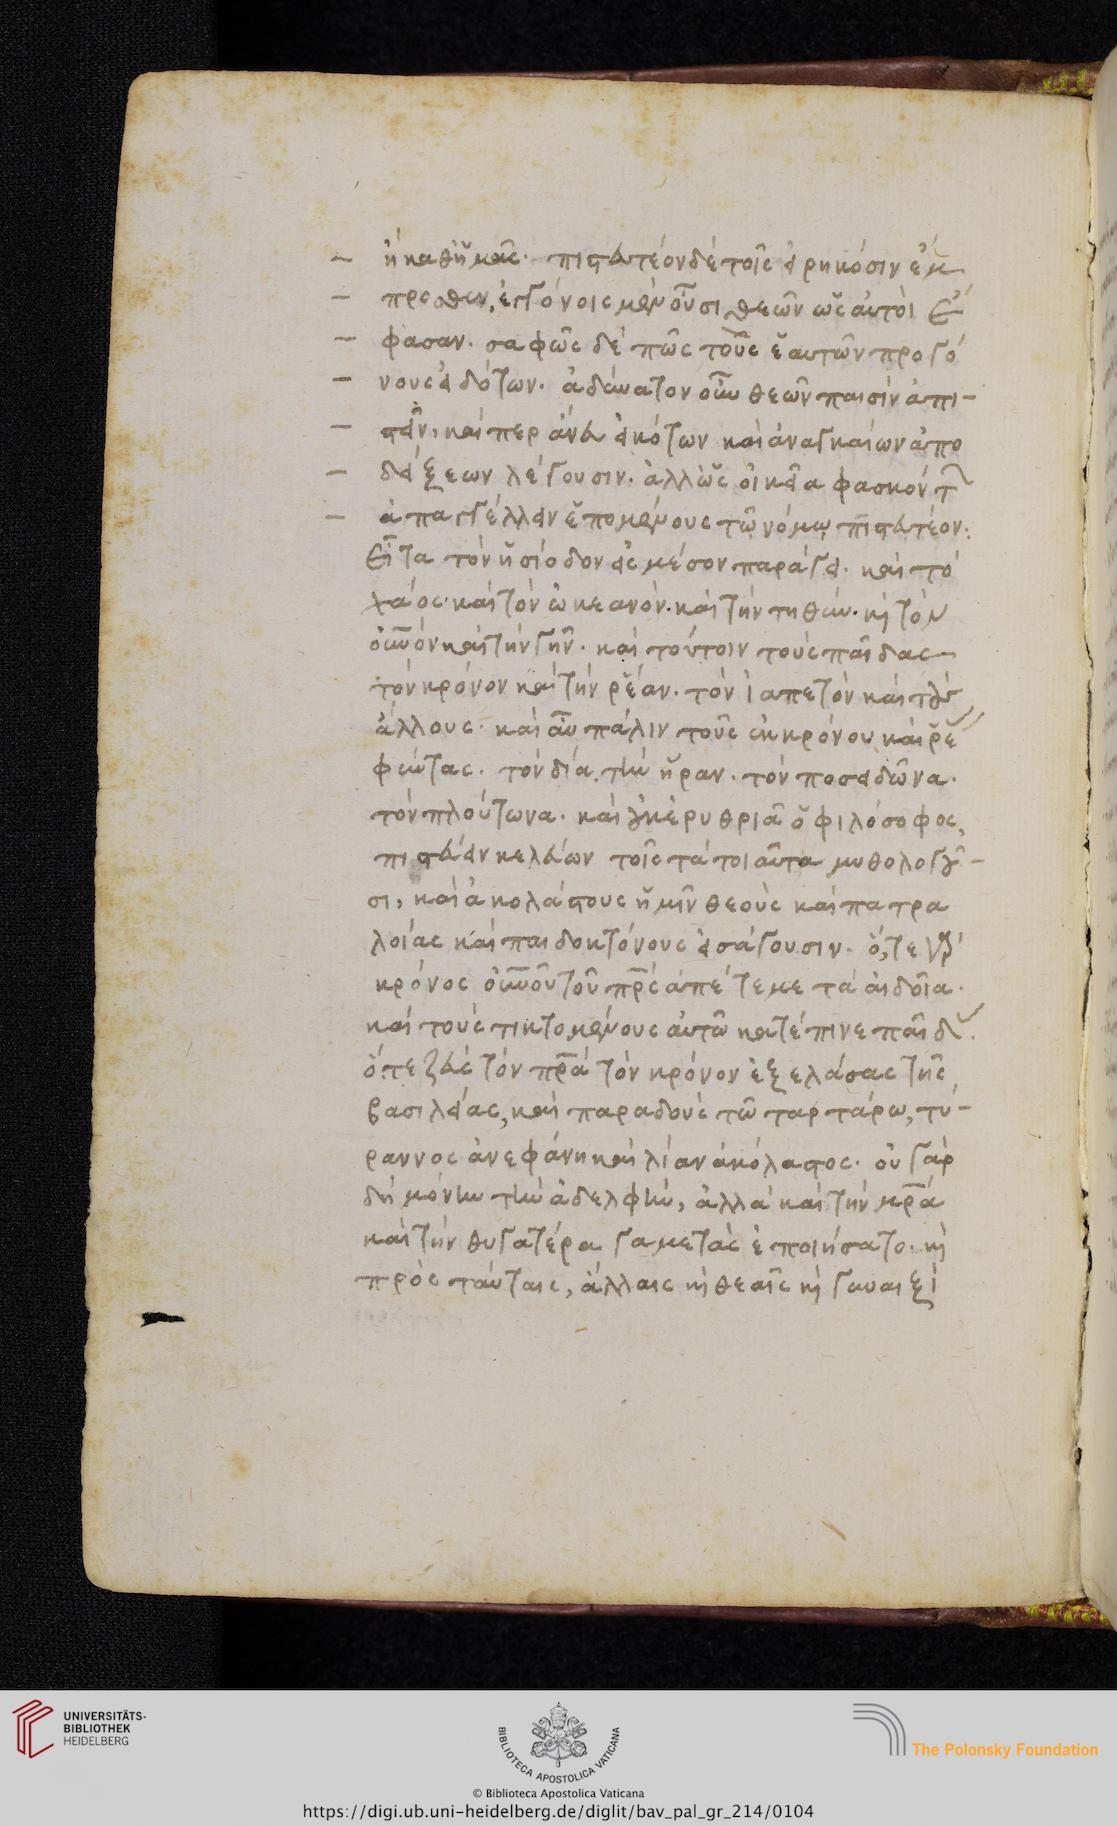 ἢ καθ' ἡμᾶς. πιστευτέον δὲ τοῖς εἰρηκόσιν ἔμ
προσθεν, ἐκγόνοις μὲν οὖσι θεῶν ὡς αὐτοὶ ἔ
φασαν. σαφῶς δέ πως τοὺς ἑαυτῶν προγό
νους εἰδότων. ἀδύνατον οὖν θεῶν παισὶν ἀπι-
στεῖν, καίπερ ἄνευ εἰκότων καὶ ἀναγκαίων ἀπο
δείξεων λέγουσιν. ἀλλ' ὡς οἰκεῖα φασκόντ
ἀπαγγέλλειν ἑπομένους τῷ νόμῳ πιστευτέον.
Εἶτα τὸν ἡσίοδον εἰς μέσον παράγει. καὶ τὸ
χάος καὶ τὸν ὠκεανόν. καὶ τὴν τηθύν. κ τὸν
οὐνὸν καὶ τὴν γῆν. καὶ τούτοιν τοὺς παῖδας
τὸν κρόνον καὶ τὴν ῥέαν. τὸν ἰαπετὸν καὶ τοὺς
ἄλλους. καὶ αὖ πάλιν τοὺς ἐκ κρόνου καὶ ῥέ
φύντας. τὸν δία. τὴν ἥραν. τὸν ποσειδῶνα.
τὸν πλούτωνα. καὶ οὐκ ἐρυθριᾶ ὁ φιλόσοφος,
πιστεύειν κελεύων τοῖς τὰ τοιαῦτα μυθολογοῦ-
σι, καὶ ἀκολάστους ἡμῖν θεοὺς καὶ πατρα
λοίας καὶ παιδοκτόνους εἰσάγουσιν. ὅ,τε γὰρ
κρόνος οὐνοῦ τοῦ πρς ἀπέτεμε τὰ αἰδοῖα.
καὶ τοὺς τικτομένους αὐτῷ κατέπινε παῖδ
ὅ,τε ζεὺς τὸν πρα τὸν κρόνον ἐξελάσας τῆς
βασιλείας, καὶ παραδοὺς τῷ ταρτάρω, τύ-
ραννος ἀνεφάνη καὶ λίαν ἀκόλαστος. οὐ γὰρ
δὴ μόνην τὴν ἀδελφὴν, ἀλλὰ καὶ τὴν μρα
καὶ τὴν θυγατέρα γαμετὰς ἐποιήσατο. κ
πρὸς ταύταις, ἄλλαις κ θεαῖς κ γυναιξὶ
UNIVERSITÄTS-
BIBLIOTHEK
HEIDELBERG
BIBLIOTECA APOSTOLICA VATICANA
The Polonsky Foundation
© Biblioteca Apostolica Vaticana
https://digi.ub.uni-heidelberg.de/diglit/bav_pal_gr_214/0104